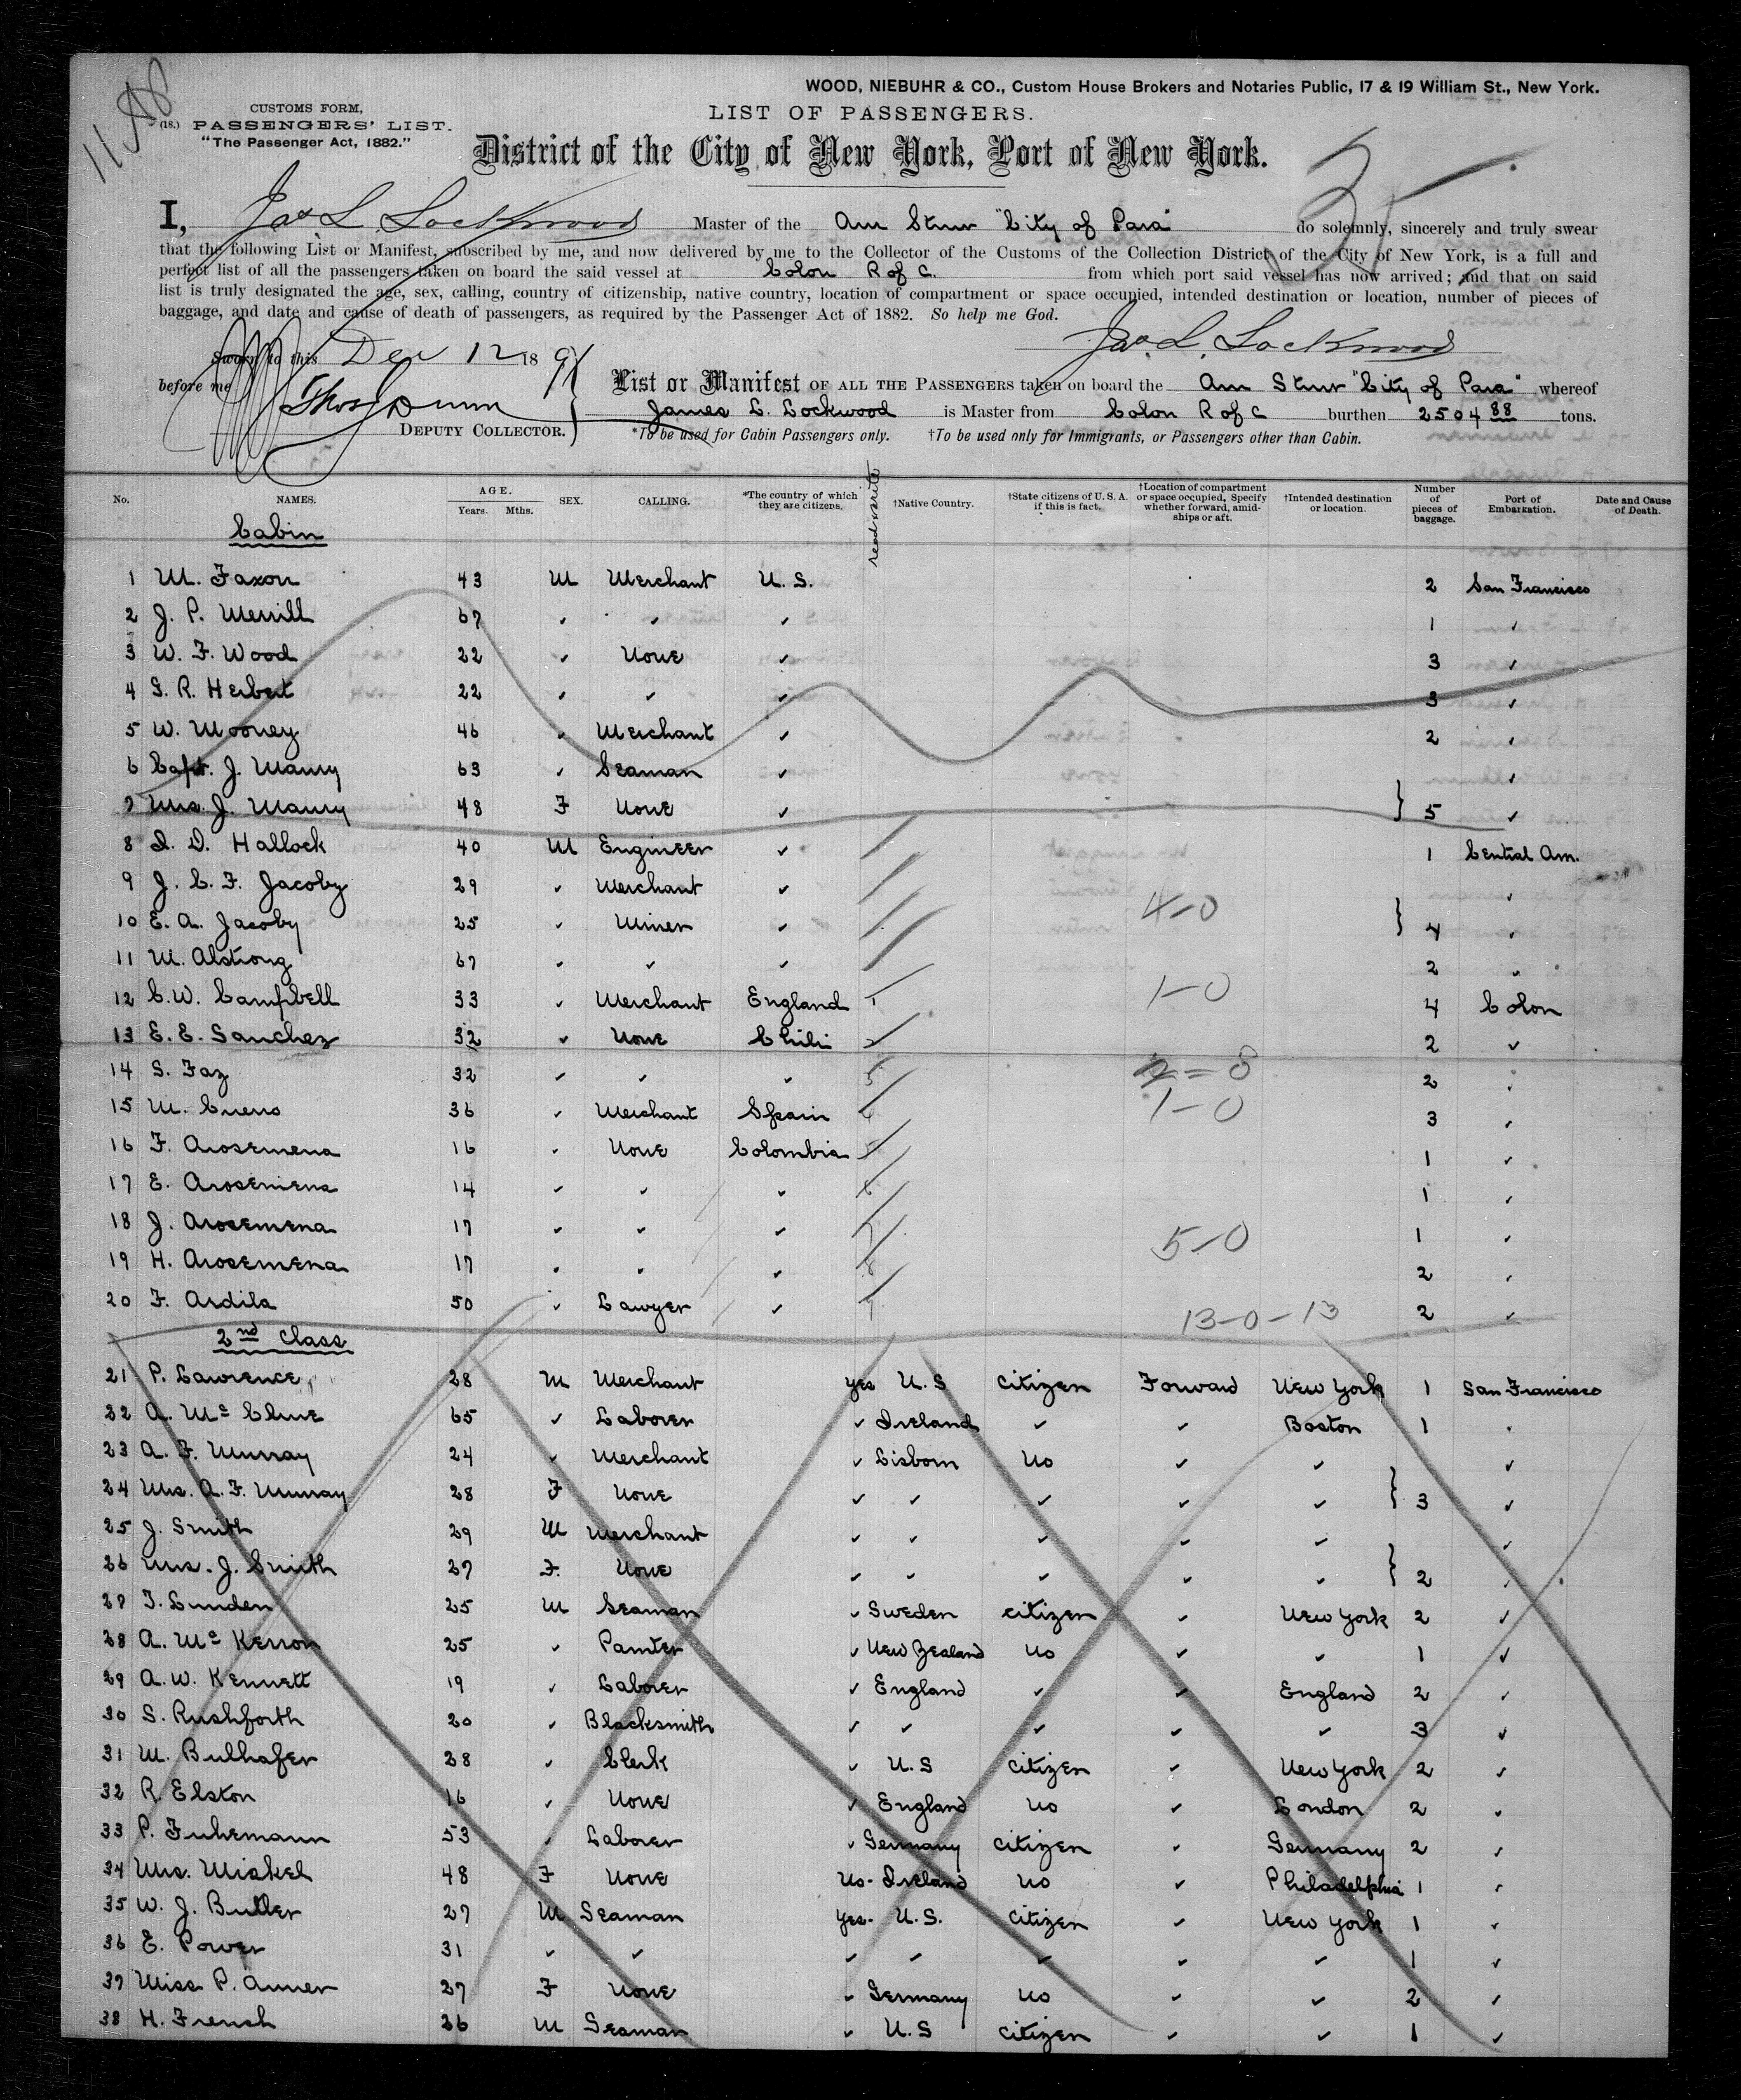 WOOD, NIEBUHR & CO., Custom House Brokers and Notaries Public, 17 & 19 William St., New York.
CUSTOMS FORM,
(18.) PASSENGERS' LIST.
"The Passenger Act, 1882."
LIST OF PASSENGERS.
District of the City of New York, Port of New York.
I, Jas L. Lockwood Master of the Am Stmr "City of Para" do solemnly, sincerely and truly swear
that the following List or Manifest, subscribed by me, and now delivered by me to the Collector of the Customs of the Collection District of the City of New York, is a full and
perfect list of all the passengers taken on board the said vessel at Colon R of C. from which port said vessel has now arrived; and that on said
list is truly designated the age, sex, calling, country of citizenship, native country, location of compartment or space occupied, intended destination or location, number of pieces of
baggage, and date and cause of death of passengers, as required by the Passenger Act of 1882. So help me God.
Jas. L. Lockwood
Sworn to this Dec 12 1891
before me
DEPUTY COLLECTOR.
List or Manifest OF ALL THE PASSENGERS taken on board the Am Stmr "City of Para" whereof
James L. Lockwood is Master from Colon R of C burthen 2504 88 tons.
*To be used for Cabin Passengers only. †To be used only for Immigrants, or Passengers other than Cabin.
No. NAMES. AGE. Years. Mths. SEX. CALLING. *The country of which they are citizens. read & write †Native Country. †State citizens of U. S. A. if this is fact. †Location of compartment or space occupied, Specify whether forward, amidships or aft. †Intended destination or location. Number of pieces of baggage. Port of Embarkation. Date and Cause of Death.
Cabin
1 M. Faxon 43 M Merchant U. S. 2 San Francisco
2 J. P. Merrill 67 ✓ ✓ ✓ 1 ✓
3 W. F. Wood 22 ✓ None ✓ 3 ✓
4 S. R. Herbert 22 ✓ ✓ ✓ 3 ✓
5 W. Mooney 46 ✓ Merchant ✓ 2 ✓
6 Capt. J. Maury 63 ✓ Seaman ✓ ✓
7 Mrs. J. Maury 48 F None ✓ } 5 ✓
8 I. D. Hallock 40 M Engineer ✓ 1 Central Am.
9 J. C. F. Jacoby 29 ✓ Merchant ✓ ✓
10 E. A. Jacoby 25 ✓ Miner ✓ 4-0 } 4 ✓
11 M. Alstrong 67 ✓ ✓ ✓ 2 ✓
12 C. W. Campbell 33 ✓ Merchant England 1 1-0 4 Colon
13 E. E. Sanchez 32 ✓ None Chili 2 2 ✓
14 S. Faz 32 ✓ ✓ ✓ 2=0 2 ✓
15 M. Cueno 36 ✓ Merchant Spain 1-0 3 ✓
16 F. Arosemena 16 ✓ None Colombia 1 ✓
17 E. Arosemena 14 ✓ ✓ ✓ 6 1 ✓
18 J. Arosemena 17 ✓ ✓ ✓ 7 5-0 1 ✓
19 H. Arosemena 17 ✓ ✓ ✓ 8 2 ✓
20 F. Ardila 50 ✓ Lawyer ✓ 13-0-13 2 ✓
2nd Class
21 P. Lawrence 28 M Merchant yes U. S citizen Forward New York 1 San Francisco
22 A. Mc Clure 65 ✓ Laborer ✓ Ireland ✓ ✓ Boston 1 ✓
23 A. F. Murray 24 ✓ Merchant ✓ Lisborn No ✓ ✓ ✓
24 Mrs. A. F. Murray 28 F None ✓ ✓ ✓ ✓ ✓ } 3 ✓
25 J. Smith 29 M Merchant ✓ ✓ ✓ ✓ ✓ ✓
26 Mrs. J. Smith 27 F. None ✓ ✓ ✓ ✓ ✓ } 2 ✓
27 T. Lunden 25 M Seaman ✓ Sweden citizen ✓ New York 2 ✓
28 A. Mc Kerron 25 ✓ Painter ✓ New Zealand No ✓ ✓ 1 ✓
29 A. W. Kennett 19 ✓ Laborer ✓ England ✓ ✓ England 2 ✓
30 S. Rushforth 20 ✓ Blacksmith ✓ ✓ ✓ ✓ ✓ 3 ✓
31 M. Bulhafer 28 ✓ Clerk ✓ U. S citizen ✓ New York 2 ✓
32 R. Elston 16 ✓ None ✓ England No ✓ London 2 ✓
33 P. Fuhemann 53 ✓ Laborer ✓ Germany citizen ✓ Germany 2 ✓
34 Mrs. Miskel 48 F None No- Ireland No ✓ Philadelphia 1 ✓
35 W. J. Butler 27 M Seaman yes- U. S. citizen ✓ New York 1 ✓
36 E. Power 31 ✓ ✓ ✓ ✓ ✓ ✓ ✓ 1 ✓
37 Miss P. Anner 27 F None ✓ Germany No ✓ ✓ 2 ✓
38 H. French 26 M Seaman ✓ U. S citizen ✓ ✓ 1 ✓